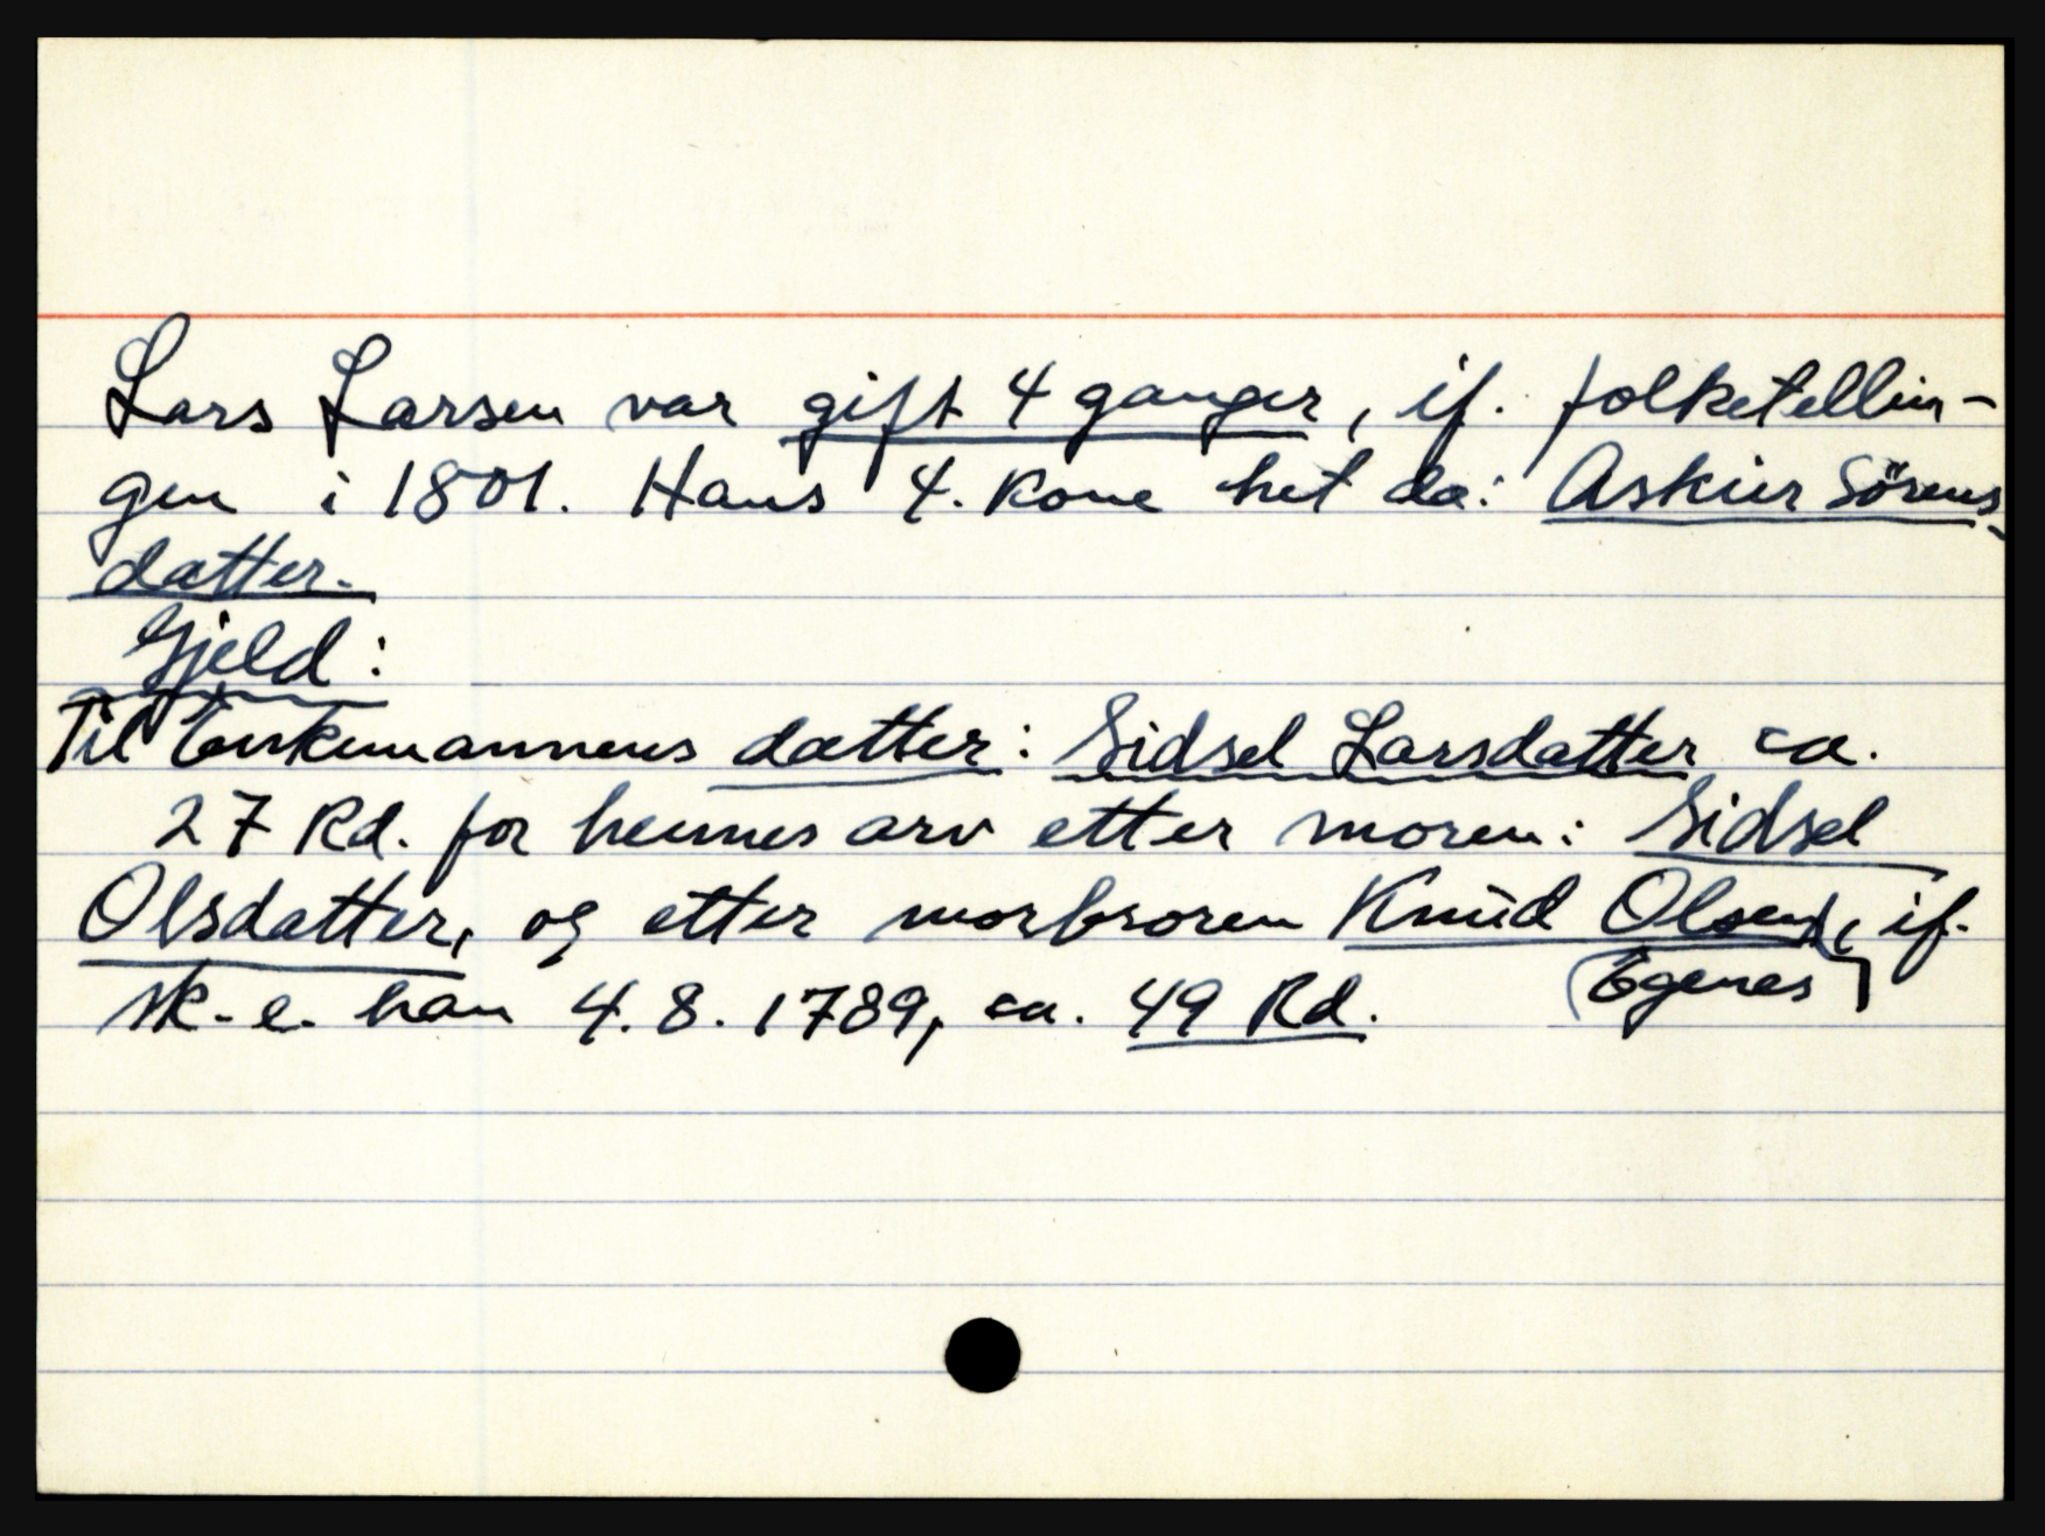 Lars Larsen var gift 4 ganger, if. folketellin-
gen i 1801. Hans 4. Kone het da: Askier Sörens-
datter.
Gjeld:
Til Enkemannens datter: Sidsel Larsdatter ca.
27 Rd. for hennes arv etter moren: Sidsel
Olsdatter, og etter morbroren Knud Olsen, if.
sk. e. han 4.8.1789, ca. 49 Rd. (Egenes)